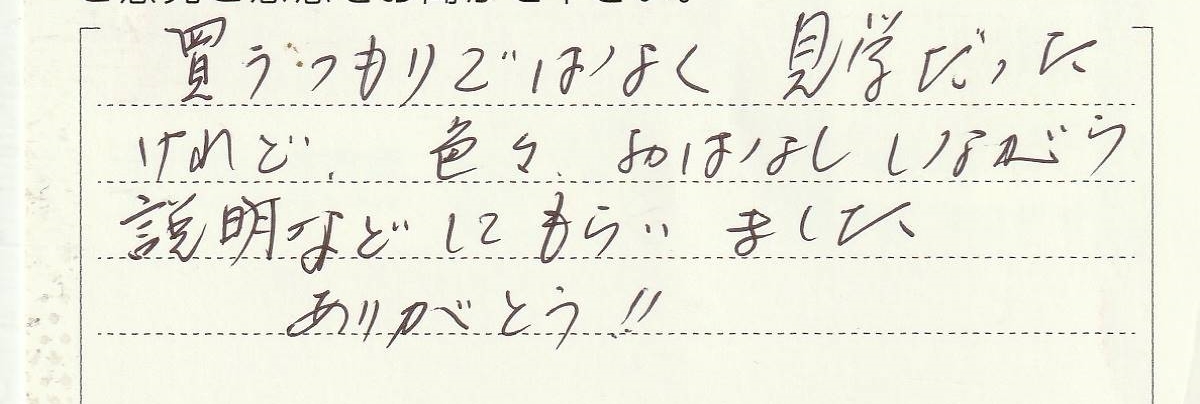 買うつもりではなく 見学だった
けれど、色々、おはなししながら
説明などしてもらいました、
ありがとう!!